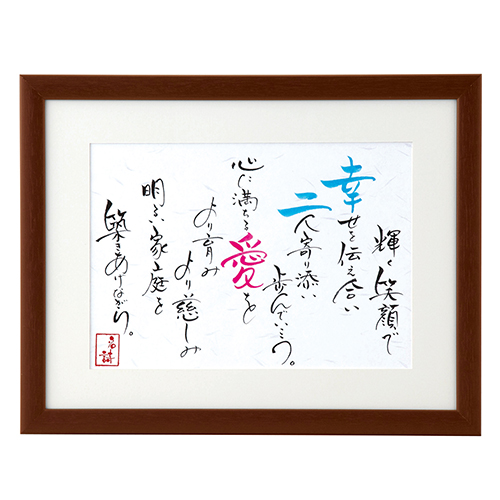 輝く笑顔で
幸せを伝え合い
二人寄り添い
歩んでいこう。
心に満ちる愛を
より慈しみ
より育み
明るい家庭を
築きあげながら。